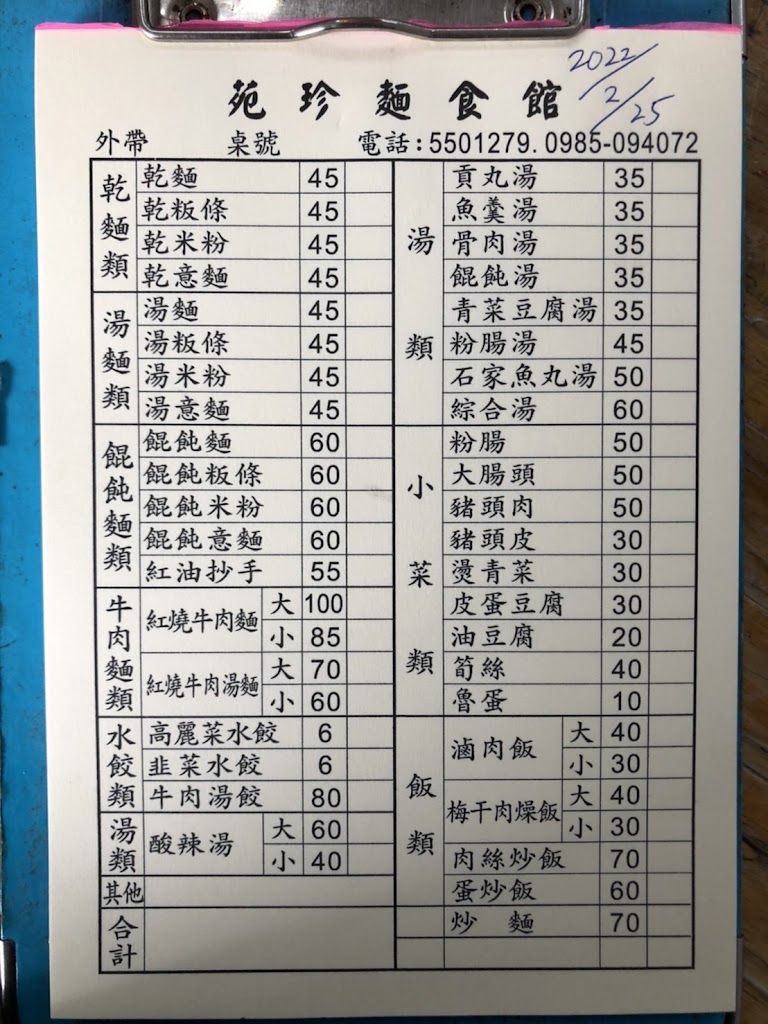 苑珍麵食館
2022/2/25
外帶 桌號 電話:5501279.0985-094072
乾麵類
乾麵 45
乾粄條 45
乾米粉 45
乾意麵 45
湯麵類
湯麵 45
湯粄條 45
湯米粉 45
湯意麵 45
餛飩麵類
餛飩麵 60
餛飩粄條 60
餛飩米粉 60
餛飩意麵 60
紅油抄手 55
牛肉麵類
紅燒牛肉麵 大 100
小 85
紅燒牛肉湯麵 大 70
小 60
水餃類
高麗菜水餃 6
韭菜水餃 6
牛肉湯餃 80
湯類
酸辣湯 大 60
小 40
其他
合計
湯類
貢丸湯 35
魚羹湯 35
骨肉湯 35
餛飩湯 35
青菜豆腐湯 35
粉腸湯 45
石家魚丸湯 50
綜合湯 60
小菜類
粉腸 50
大腸頭 50
豬頭肉 50
豬頭皮 30
燙青菜 30
皮蛋豆腐 30
油豆腐 20
筍絲 40
魯蛋 10
飯類
滷肉飯 大 40
小 30
梅干肉燥飯 大 40
小 30
肉絲炒飯 70
蛋炒飯 60
炒麵 70